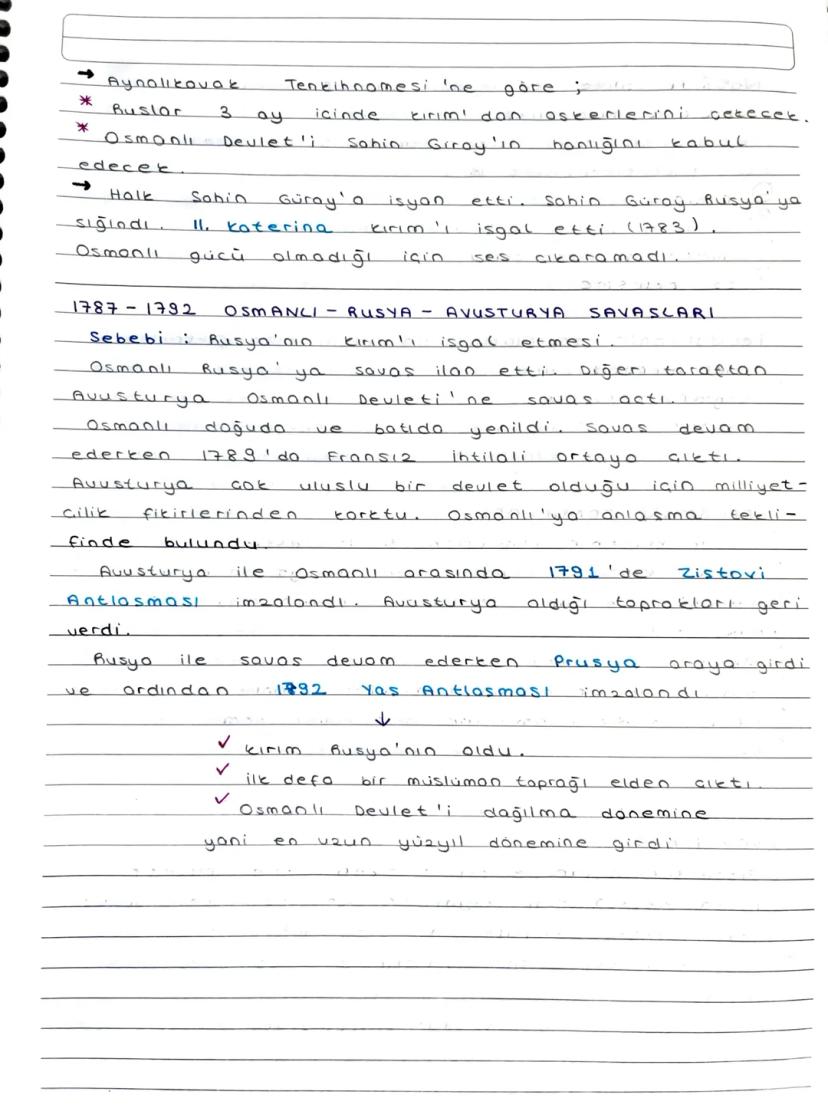 → Aynalıkavak Tenkihnamesi'ne göre ;
* Ruslar 3 ay icinde kırım'dan askerlerini çekecek.
* Osmanlı Devlet'i Sahin Giray'ın hanlığını kabul
edecek.
→ Halk Sahin Güray'a isyan etti. Sahin Güray Rusya'ya
sığındı. II. Katerina kırım'ı isgal etti (1783).
Osmanlı gücü olmadığı için ses cıkaramadı.
1787-1792 OSMANLI-RUSYA-AVUSTURYA SAVASLARI
Sebebi : Rusya'nın kırım'ı isgal etmesi.
Osmanlı Rusya'ya savas ilan etti. Diğer taraftan
Avusturya Osmanlı Devleti'ne savas actı.
Osmanlı doğuda ve batıda yenildi. Savas devam
ederken 1789'da Fransız ihtilali ortaya cıktı.
Avusturya cok uluslu bir devlet olduğu için milliyet-
cilik fikirlerinden korktu. Osmanlı'ya anlasma tekli-
finde bulundu.
Avusturya ile Osmanlı arasında 1791'de Zistovi
Antlasması imzalandı. Avusturya aldığı toprakları geri
verdi.
Rusya ile savas devam ederken Prusya araya girdi
ve ardından 1792 Yas Antlasması imzalandı
↓
✓ kırım Rusya'nın oldu.
✓ ilk defa bir müslüman toprağı elden cıktı.
✓ Osmanlı Devlet'i dağılma dönemine
yani en uzun yüzyıl dönemine girdi